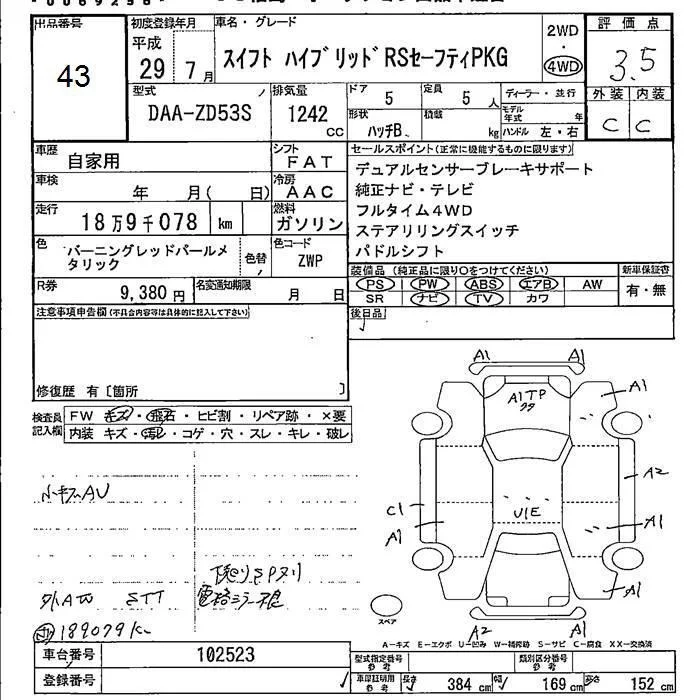 出品番号
43
初度登録年月
平成
29年 7月
車名・グレード
スイフト ハイブリッドRSセーフティPKG
2WD
・
4WD
評価点
3.5
外装 内装
C C
型式
DAA-ZD53S
排気量
1242
CC
ドア
5
定員
5 人
ディーラー・並行
モデル年式 年
形状
ハッチB
積載
kg
ハンドル 左・右
車歴
自家用
シフト
FAT
車検
年 月( 日)
冷房
AAC
走行
18万9千078 km
燃料
ガソリン
色
バーニングレッドパールメ
タリック
色替
色コード
ZWP
R券
9,380円
名変通知期限
月 日
セールスポイント(正常に機能するものに限ります)
デュアルセンサーブレーキサポート
純正ナビ・テレビ
フルタイム4WD
ステアリングスイッチ
パドルシフト
装備品(純正品に限り○をつけてください)
新車保証書
PS PW ABS エアB AW
有・無
SR ナビ TV カワ
後日品
注意事項申告欄(不具合内容等は具体的に記入して下さい)
修復歴 有[箇所 ]
検査員
記入欄
FW キズ・飛石・ヒビ割・リペア跡・×要
内装 キズ・汚れ・コゲ・穴・スレ・キレ・破レ
小キズAU
外AW STT
電格ミラー不良
189079K
A1 A1
A1TP
A1
A2
C1
U1E
A1
A1
A1
A2
スペア
A1
A-キズ E-エクボ U-凹み W-補修跡 S-サビ C-腐食 XX-交換済
車台番号
102523
登録番号
型式指定番号
参考
類別区分番号
参考
車庫証明用
参考
長さ
384 cm
幅
169 cm
高さ
152 cm